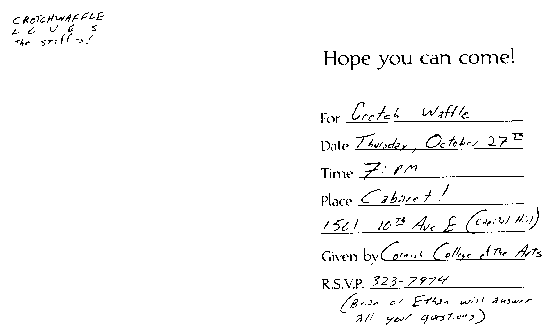 CROTCHWAFFLE
LOVES
the stiffs!
Hope you can come!
For Crotch Waffle
Date Thursday, October 27TH
Time 7: PM
Place Cabaret!
1501 10TH Ave E (Capitol Hill)
Given by Cornish College of the Arts
R.S.V.P. 323-7974
(Brian or Ethan will answer
all your questions)